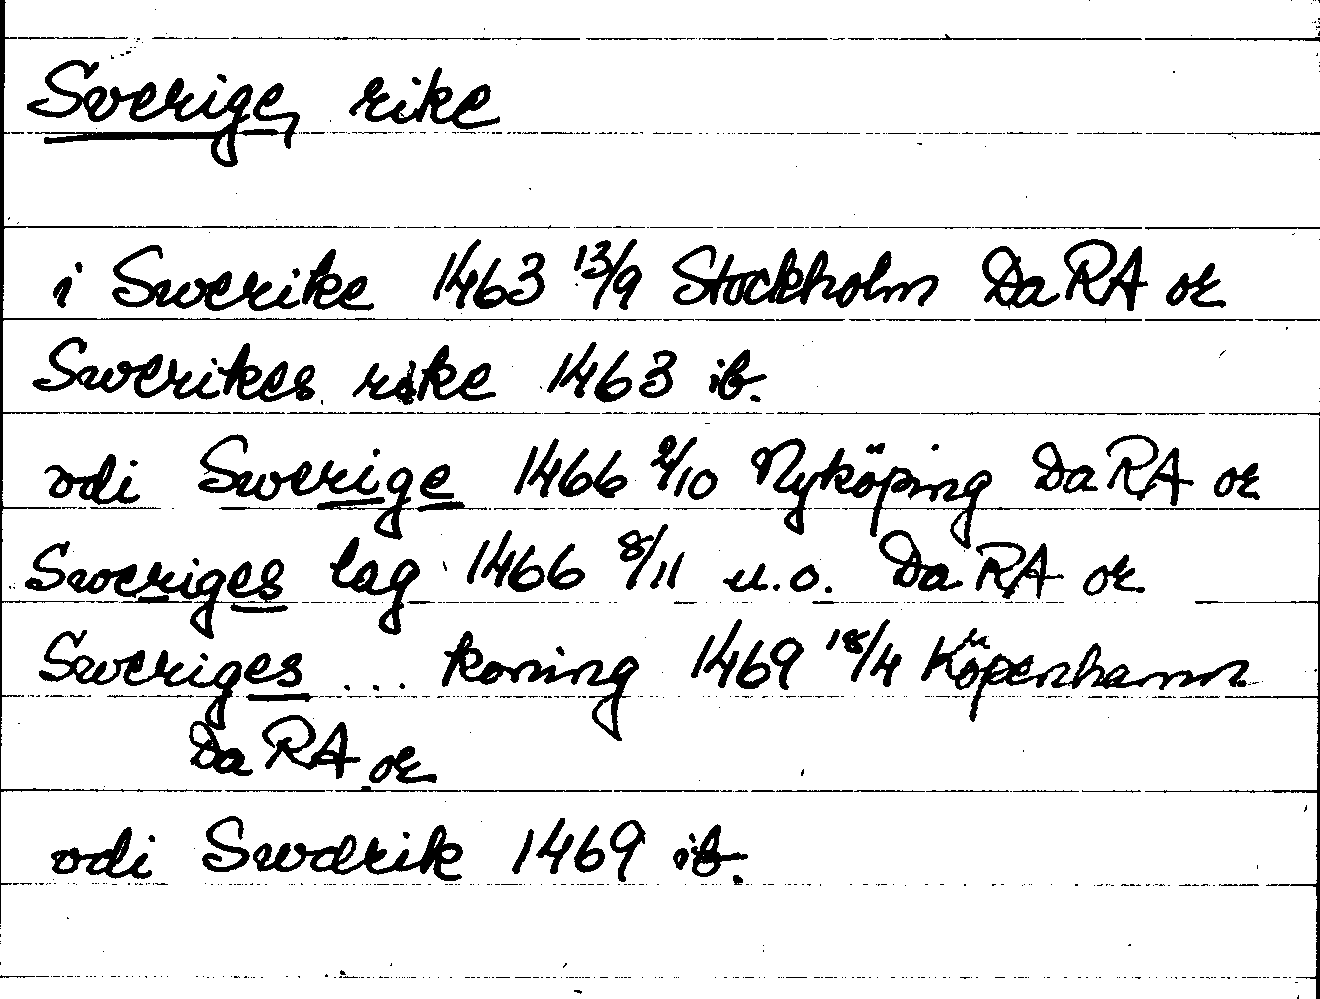 Sverige, rike
i Swerike 1463 13/9 Stockholm DaRA or
Swerikes rike 1463 ib.
vdi Swerige 1466 2/10 Nyköping DaRA or
Sweriges lag 1466 8/11 u.o. DaRA or
Sweriges ... koning 1469 18/4 Köpenhamn
DaRA or
vdi Swdrik 1469 ib.